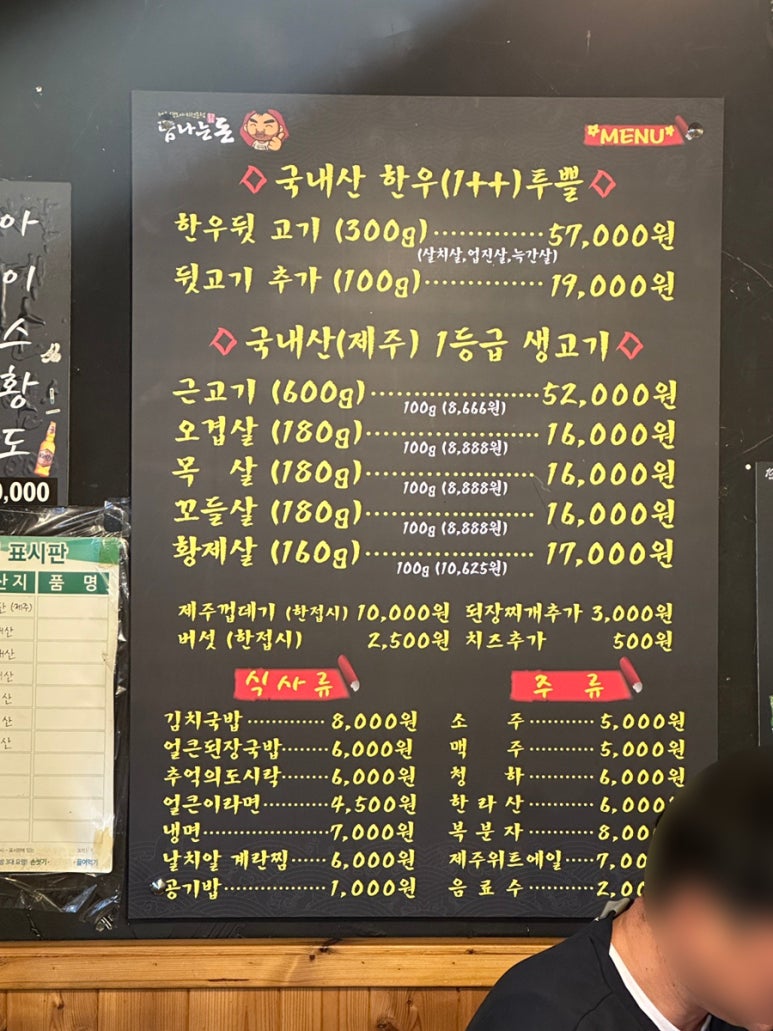 나는돈
*MENU*
국내산 한우(1++)투쁠
한우뒷 고기 (300g)·············57,000원
(살치살,업진살,늑간살)
뒷고기 추가 (100g)·············19,000원
국내산(제주) 1등급 생고기
근고기 (600g)···················52,000원
100g (8,666원)
오겹살 (180g)···················16,000원
100g (8,888원)
목 살 (180g)···················16,000원
100g (8,888원)
꼬들살 (180g)···················16,000원
100g (8,888원)
황제살 (160g)···················17,000원
100g (10,625원)
제주껍데기 (한접시) 10,000원 된장찌개추가 3,000원
버섯 (한접시) 2,500원 치즈추가 500원
식사류
김치국밥············8,000원
얼큰된장국밥·······6,000원
추억의도시락·······6,000원
얼큰이라면··········4,500원
냉면··················7,000원
날치알 계란찜·····6,000원
공기밥···············1,000원
주 류
소 주··········5,000원
맥 주··········5,000원
청 하··········6,000원
한 라 산··········6,000
복 분 자··········8,00
제주위트에일····7,00
음 료 수··········2,00
아
이
수
황
도
0,000
표시판
산지 품 명
산 (제주)
산
산
산
산
산